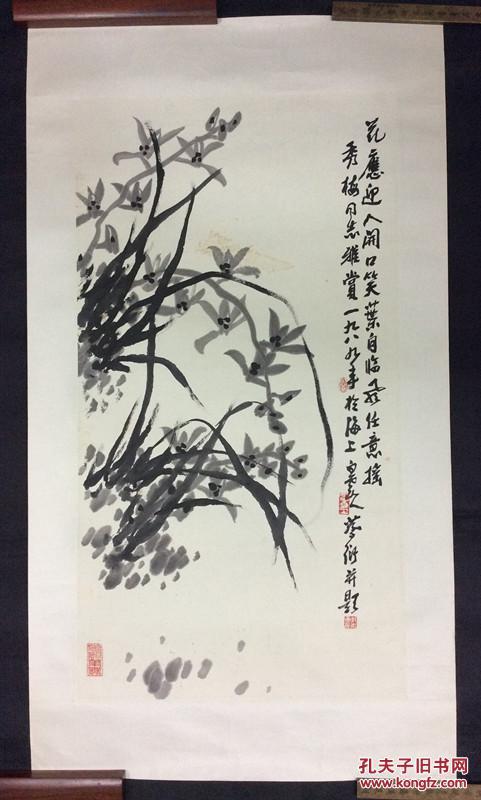 花應迎人開口笑葉自臨風任意搖
秀梅同志雅賞一九八九年於海上
并題
孔夫子旧书网
www.kongfz.com